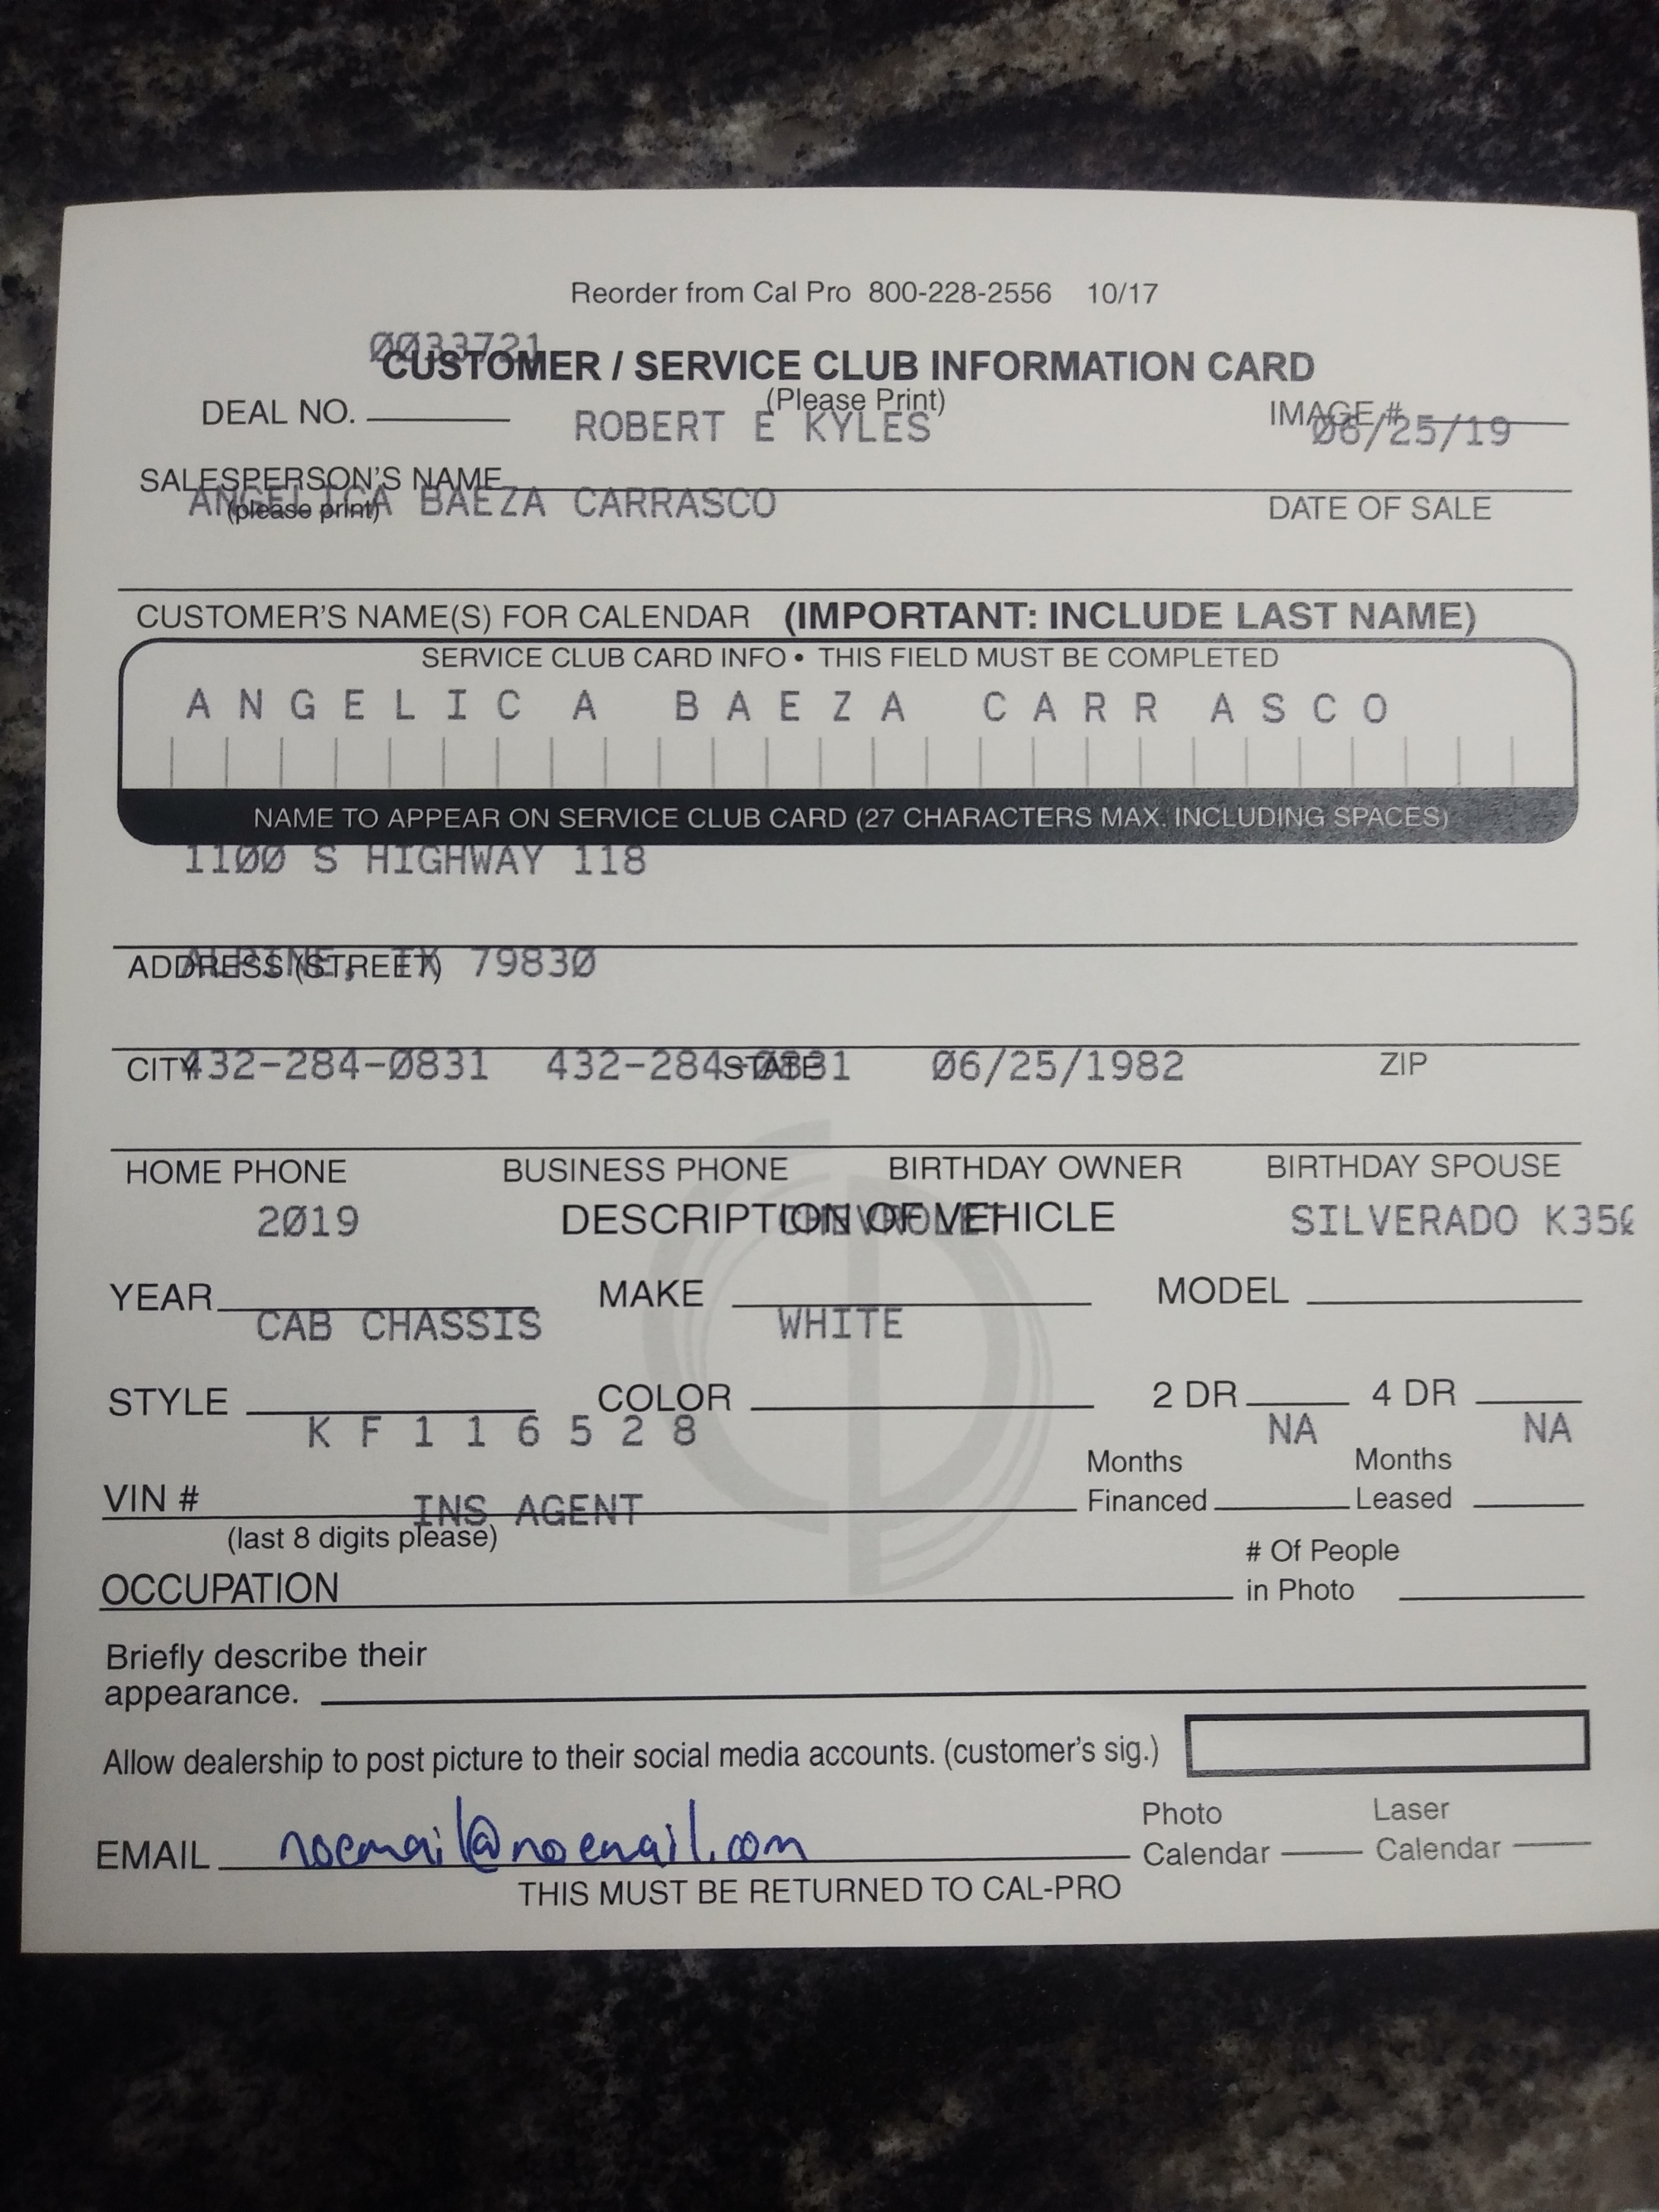 Reorder from Cal Pro 800-228-2556 10/17
0033721
CUSTOMER / SERVICE CLUB INFORMATION CARD
(Please Print)
DEAL NO. ROBERT E KYLES IMAGE # 06/25/19
SALESPERSON'S NAME
ANGELICA BAEZA CARRASCO
(please print) DATE OF SALE
CUSTOMER'S NAME(S) FOR CALENDAR (IMPORTANT: INCLUDE LAST NAME)
SERVICE CLUB CARD INFO • THIS FIELD MUST BE COMPLETED
ANGELICA BAEZA CARRASCO
NAME TO APPEAR ON SERVICE CLUB CARD (27 CHARACTERS MAX. INCLUDING SPACES)
1100 S HIGHWAY 118
ALPINE, TX 79830
ADDRESS (STREET)
432-284-0831 432-284-0831 06/25/1982
CITY STATE ZIP
HOME PHONE BUSINESS PHONE BIRTHDAY OWNER BIRTHDAY SPOUSE
2019 CHEVROLET SILVERADO
DESCRIPTION OF VEHICLE
YEAR MAKE MODEL
CAB CHASSIS WHITE
STYLE COLOR 2 DR 4 DR
KF116528 NA NA
VIN # Months Financed Months Leased
INS AGENT
(last 8 digits please)
OCCUPATION # Of People in Photo
Briefly describe their
appearance.
Allow dealership to post picture to their social media accounts. (customer's sig.)
EMAIL noemail@noemail.com Photo Calendar Laser Calendar
THIS MUST BE RETURNED TO CAL-PRO